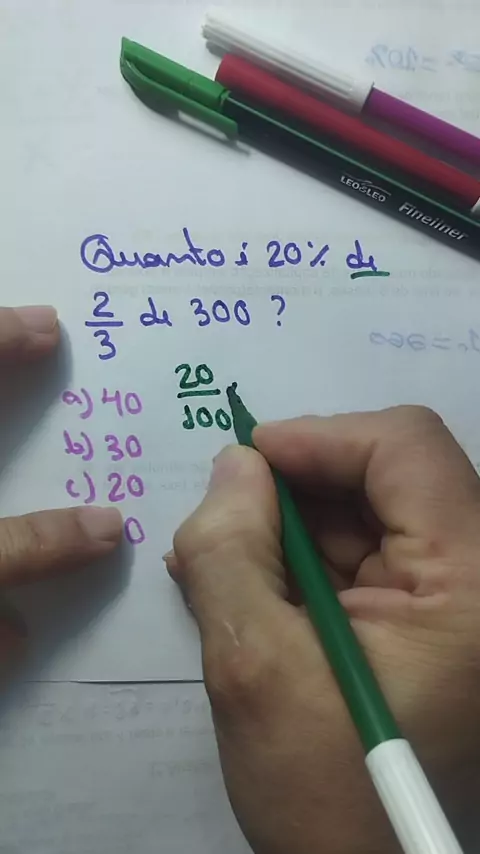 LEO&LEO Fineliner
Quanto é 20% de
2/3 de 300 ?
a) 40
b) 30
c) 20
0
20/100 .